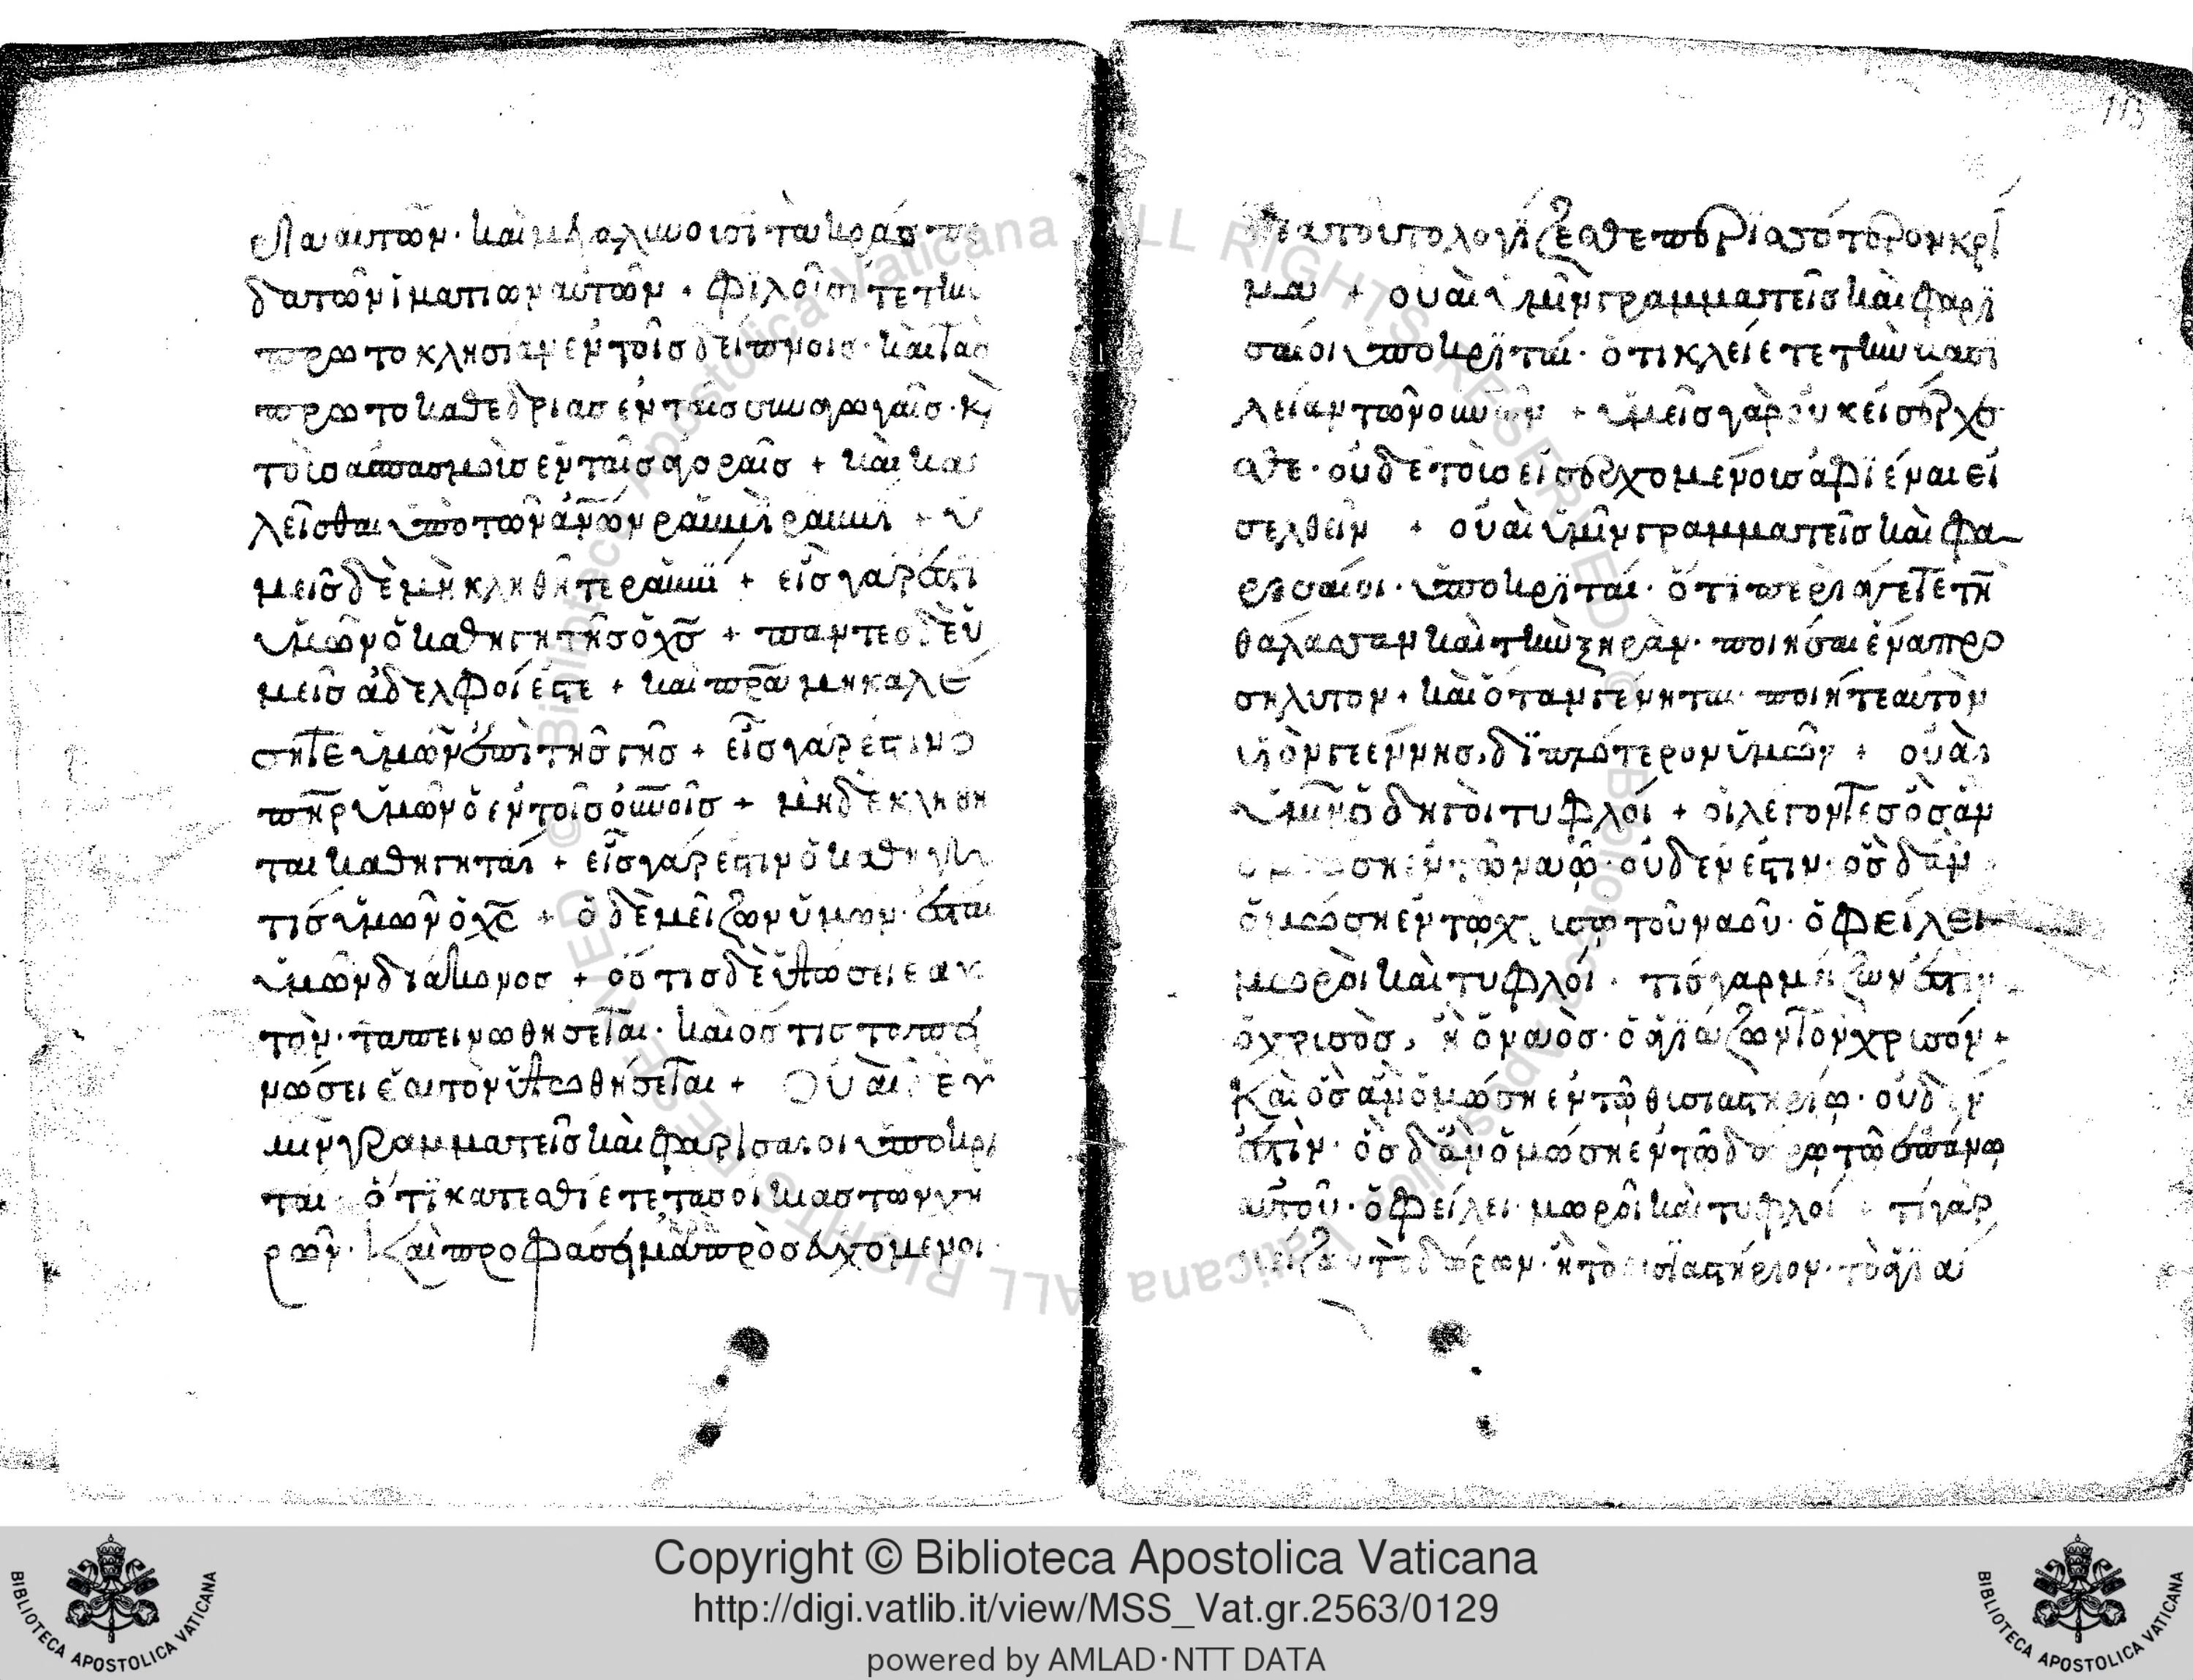 λα αυτῶν· καὶ μεγαλύνουσι τὰ κράσπε
δα τῶν ἱματίων αὐτῶν + φϊλοῦσί τε τὴν
πρωτοκλησίαν ἐν τοῖς δείπνοις· καὶ τὰς
πρωτοκαθεδρίας ἐν ταῖς συναγωγαῖς· κ
τοὺς ἀσπασμοὺς ἐν ταῖς ἀγοραῖς + καὶ κα
λεῖσθαι ὑπὸ τῶν ἀνων ραββὶ ραββὶ + ὑ
μεῖς δὲ μὴ κληθῆτε ραββϊ + εἷς γάρ ἐστι
ὑμῶν ὁ καθηγητὴς ὁ χς + πάντες δὲ ὑ
μεῖς ἀδελφοί ἐστε + καὶ πρα μὴ καλέ
σητε ὑμῶν ἐπὶ τῆς γῆς + εἷς γάρ ἐστιν ὁ
πηρ ὑμῶν ὁ ἐν τοῖς οὐνοῖς + μηδὲ κληθῆ
ται καθηγηταί + εἷς γάρ ἐστιν ὁ καθηγη
τὶς ὑμῶν ὁ χς + ὁ δὲ μείζων ὑμῶν· ἔσται
ὑμῶν διάκονος + ὅστις δὲ ὑψώσει εαυ
τὸν· ταπεινωθήσεται· καὶ ὅστις ταπεί
νώσει ἑαυτὸν ὑψωθήσεται + Οὐαὶ δὲ ὑ
μῖν γραμματεῖς καὶ φαρισαῖοι ὑποκρι
ταί· ὅτϊ κατεσθίετε τὰς οἰκίας τῶν χη
ρῶν· Καὶ προφάσει μακρὰ προσευχόμενοι·
διὰ τοῦτο λογίζεσθε περϊσσότερον κρί
μα + οὐαὶ ὑμῖν γραμματεῖς καὶ φαρϊ
σαῖοι ὑποκρϊταί· ὅτι κλείετε τὴν βασϊ
λείαν τῶν οὐνῶν + ὑμεῖς γὰρ οὐκ εἰσέρχε
σθε· οὐδὲ τοὺς εἰσερχομένους ἀφϊέναι εἰ
σελθεῖν + οὐαὶ ὑμῖν γραμματεῖς καὶ φα
ρισαῖοι· ὑποκρϊταί· ὅτϊ περιάγετε τὴ
θάλασσαν καὶ τὴν ξηρὰν· ποιῆσαι ἕνα προ
σήλυτον + καὶ ὅταν γένηται· ποιῆτε αὐτὸν
ϋἱὸν γεέννης, δϊπλότερον ὑμῶν + οὐαὶ
ὑμῖν ὁδηγοὶ τυφλοί + οἱ λέγοντες ὃς ἂν
ὀμόση ἐν τῶ ναῶ· οὐδέν ἐστιν· ὃς δ ἂν
ὀμόση ἐν τῶ χρυσῶ τοῦ ναοῦ· ὀφείλει
μωροὶ καὶ τυφλοί· τίς γαρ μείζων ἐστιν
ὁ χρισὸς, ἢ ὁ ναὸς· ὁ ἁγϊάζων τὸν χρισόν +
Καὶ ὃς ἂν ὀμώση ἐν τῶ θισιαστηρίω· οὐδέν
ἐστὶν· ὃς δ ἂν ὀμώση ἐν τῶ δώρω τῶ ἐπάνω
αὐτοῦ· ὀφείλει· μωροὶ καὶ τυφλοί + τί γὰρ
μείζων τὸ δώρων· ἢ τὸ θισϊαστήριον· τὸ ἁγϊά
Copyright © Biblioteca Apostolica Vaticana
http://digi.vatlib.it/view/MSS_Vat.gr.2563/0129
powered by AMLAD·NTT DATA